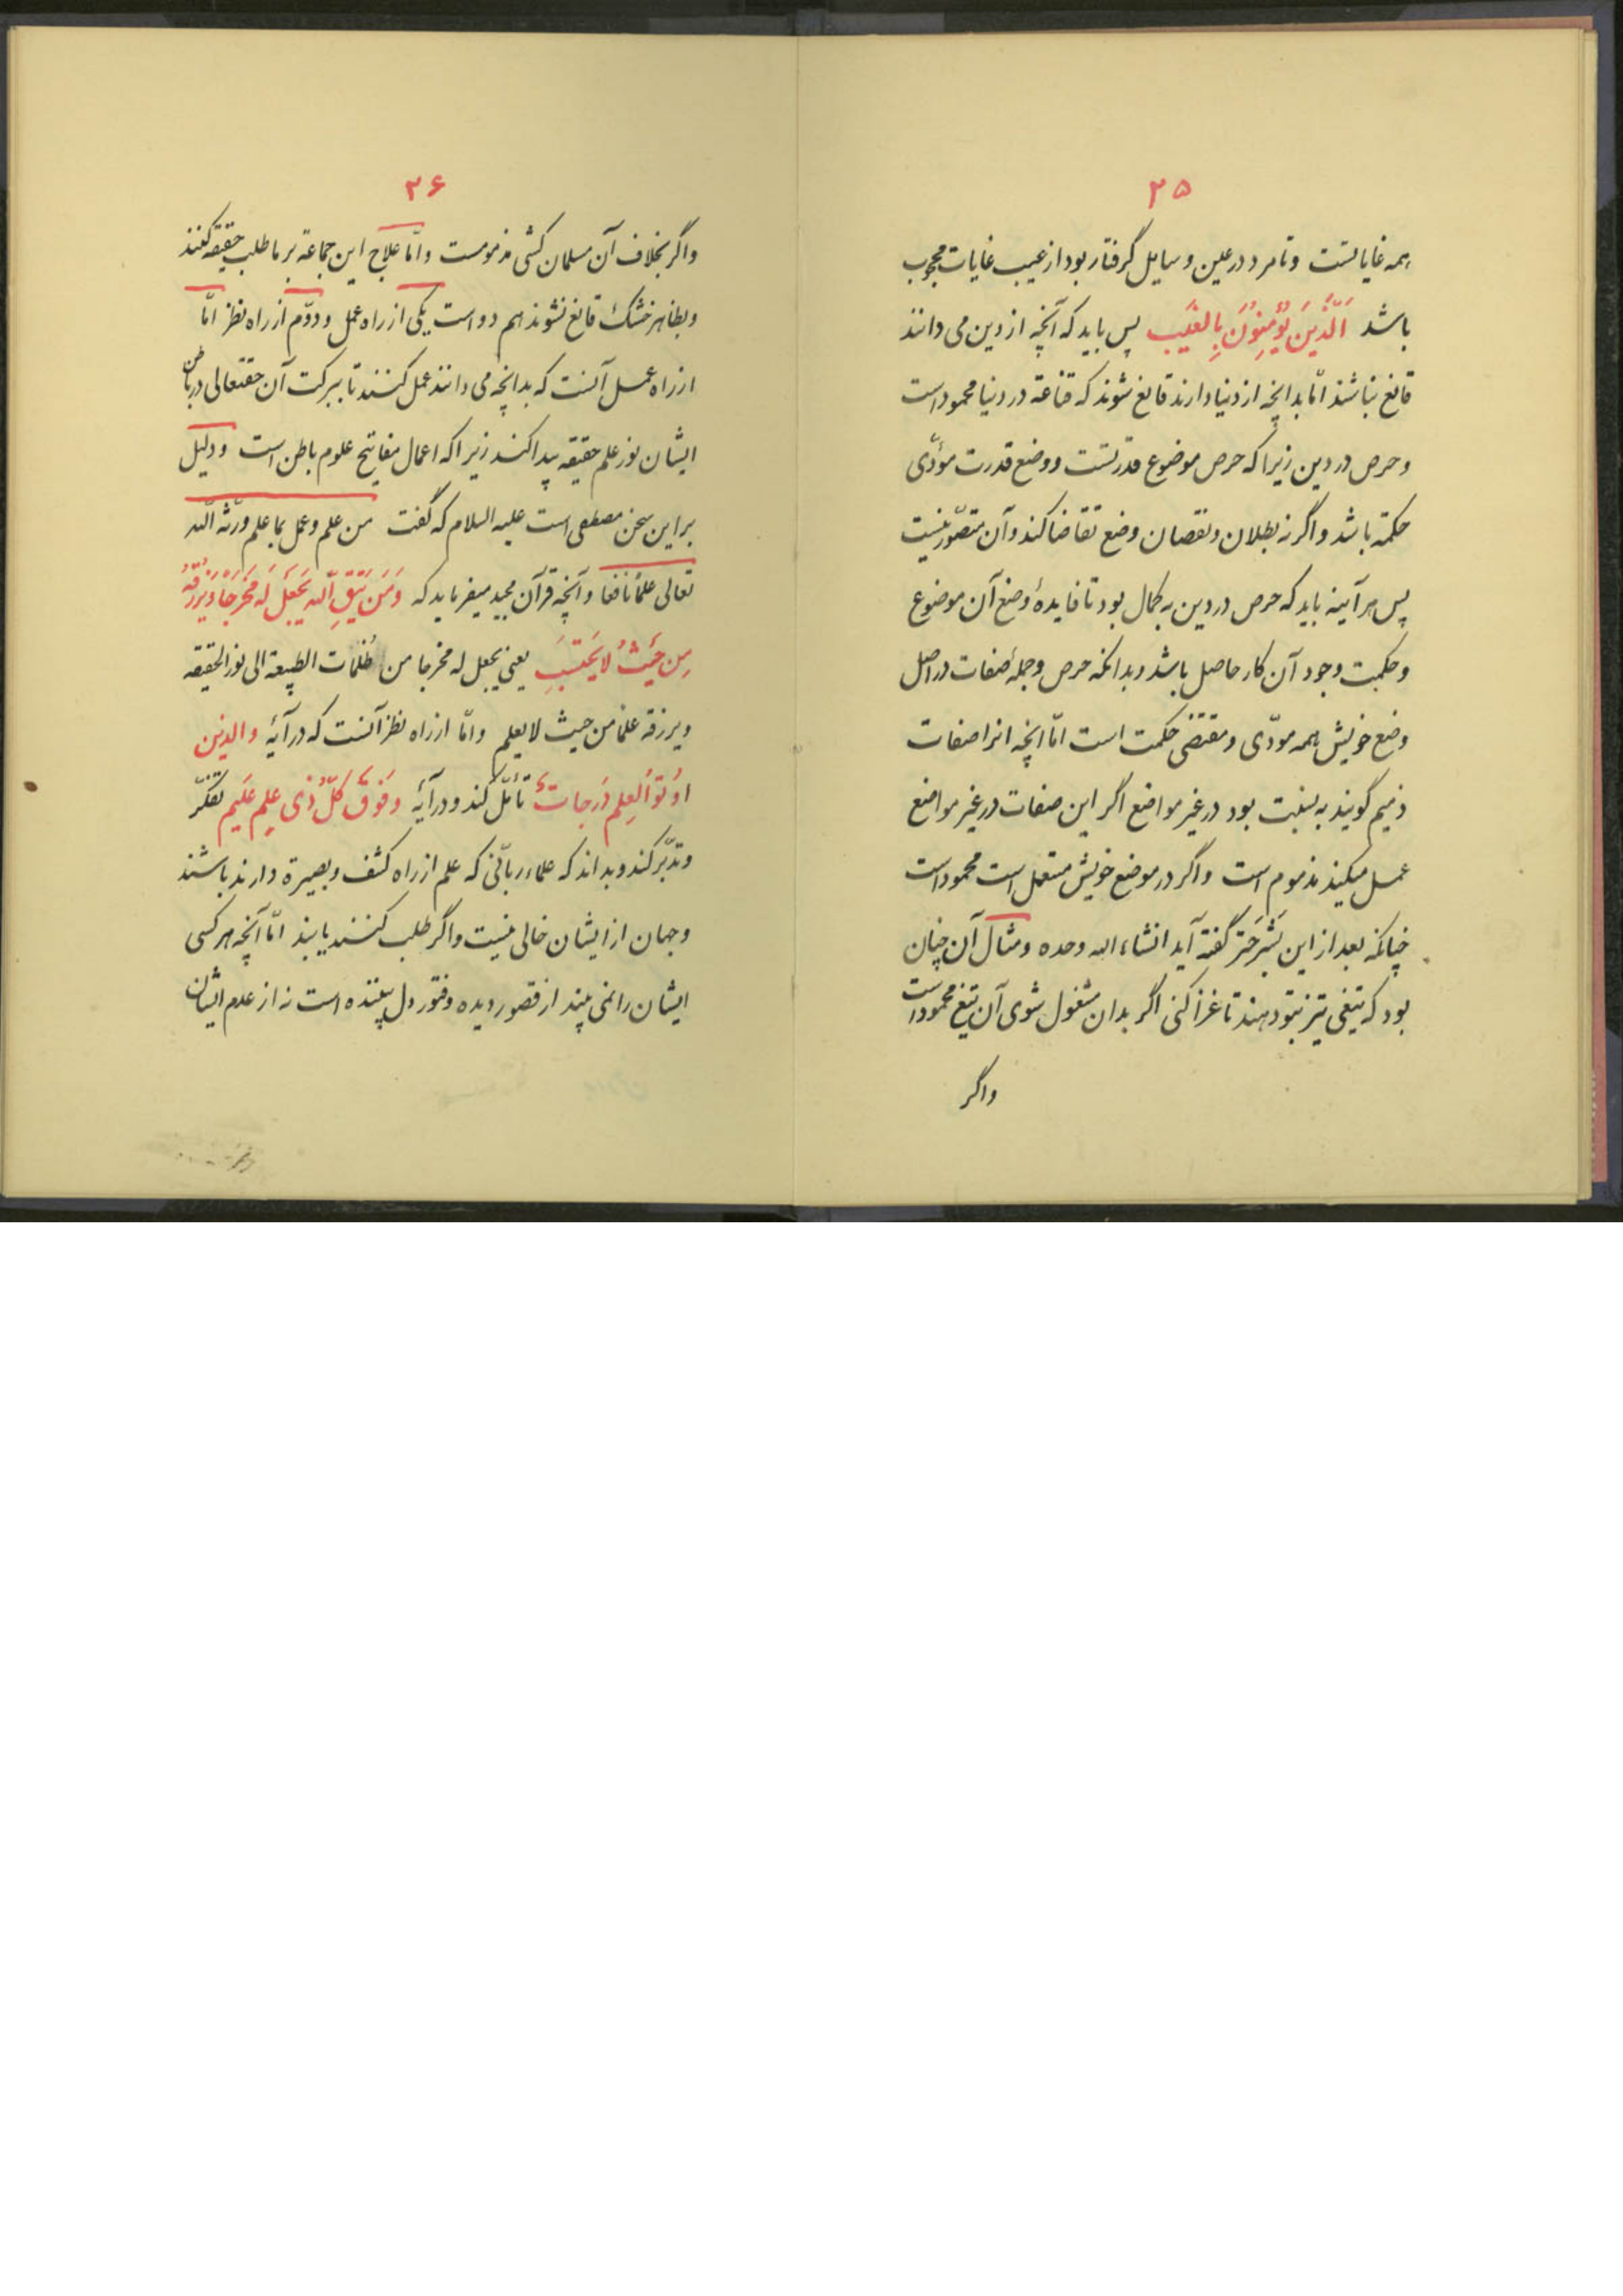 ۲۵
همه غایاتست وتا مرد در عین وسایل گرفتار بود از غیب غایات محجوب
باشد اَلَّذینَ یُؤمِنوُنَ بِالغَیب پس باید که آنچه از دین می دانند
قانع نباشند امّا بدانچه از دنیا دارند قانع شوند که قناعة در دنیا محمود است
وحرص در دین زیرا که حرص موضوع قدرتست ووضع قدرت مؤدّی
حکمة باشد واگرنه بطلان ونقصان وضع تقاضا کند وآن متصّور نیست
پس هرآینه باید که حرص در دین به کمال بود تا فایدهٔ وضع آن موضوع
وحکمت وجود آن کار حاصل باشد وبدانکه حرص وجملهٔ صفات در اصل
وضع خویش همه مودّی ومقتضی حکمت است امّا انچه انرا صفات
ذمیم گویند به نسبت بود در غیر مواضع اگر این صفات در غیر مواضع
عمل میکنند مذموم است واگر در موضع خویش مستعمل است محمود است
چنانکه بعد ازین گفته آید انشاء الله وحده ومثال آن چنان
بود که تیغی تیز بتو دهند تا غزا کنی اگر بدان مشغول شوی آن تیغ محمود است
واگر
۲۶
واگر بخلاف آن مسلمان کشی مذمومست وامّا علاج این جماعة بر ما طلب حقیقه کنند
وبظاهر خشک قانع نشوند هم دو است یکی از راه عمل ودوّم از راه نظر امّا
از راه عمل آنست که بدانچه می دانند عمل کنند تا ببرکت آن حقتعالی در باطن
ایشان نور علم حقیقه پیدا کند زیرا که اعمال مفاتیح علوم باطن است ودلیل
بر این سخن مصطفی است علیه السلام که گفت من علم وعمل بما علم ورّثه اللّه
تعالی علمًا نافعا وآنچه قرآن مجید میفرماید که وَمَن یَتَّقِ اللّه یَجعَل لَه مَخرَجًا وَیَرزُقهُ
مِن حَیثُ لایَحتَسِب یعنی یجعل له مخرجا من ظلمات الطبیعة الی نور الحقیقه
ویرزقه علمًا من حیث لایعلم وامّا از راه نظر آنست که در آیهٔ والذین
اوُتوُاالعِلم دَرجاتٍ تأمّل کند ودر آیهٔ وَفَوقَ کُلِّ ذی عِلمٍ عَلیم تفکّر
وتدبّر کند وبداند که علماء ربّانی که علم از راه کشف وبصیرة دارند باشند
وجهان از ایشان خالی نیست واگر طلب کنند یابند امّا آنچه هر کسی
ایشان را نمی بیند از قصور دیده وفتور دل بیننده است نه از عدم ایشان